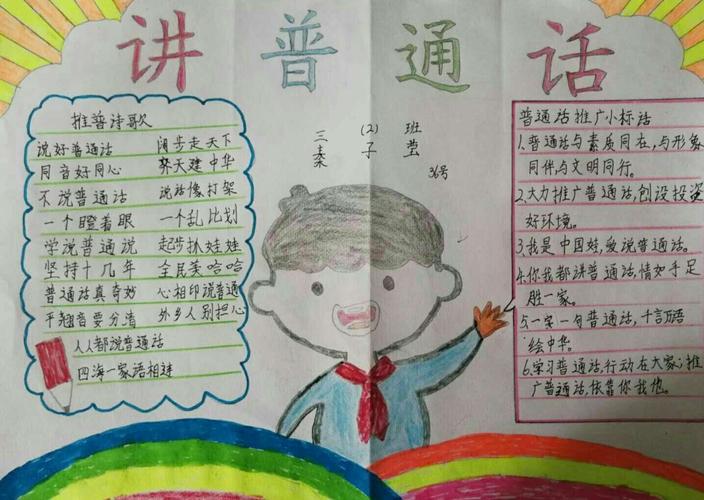 讲普通话
三(2)班
子莹
36号
推普诗歌
说好普通话 阔步走天下
同音好同心 齐天建中华
不说普通话 说话像打架
一个瞪着眼 一个乱比划
学说普通说 起步抓娃娃
坚持十几年 全民美哈哈
普通话真奇妙 心相印说普通
平翘音要分清 外乡人别担心
人人都说普通话
四海一家语相连
普通话推广小标话
1.普通话与素质同在,与形象
同伴与文明同行。
2.大力推广普通话,创设投资
好环境。
3.我是中国娃,爱说普通话。
4.你我都讲普通话,情如手足
胜一家。
5.一字一句普通话,千言万语
绘中华。
6.学习普通话,行动在大家;推
广普通话,依靠你我他。